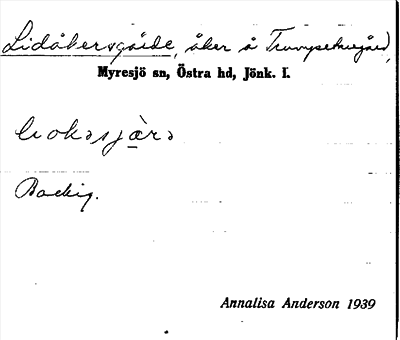 Lidåkersgärde, åker å Trumpetaregård,
Myresjö sn, Östra hd, Jönk. l.
Backig.
Annalisa Anderson 1939